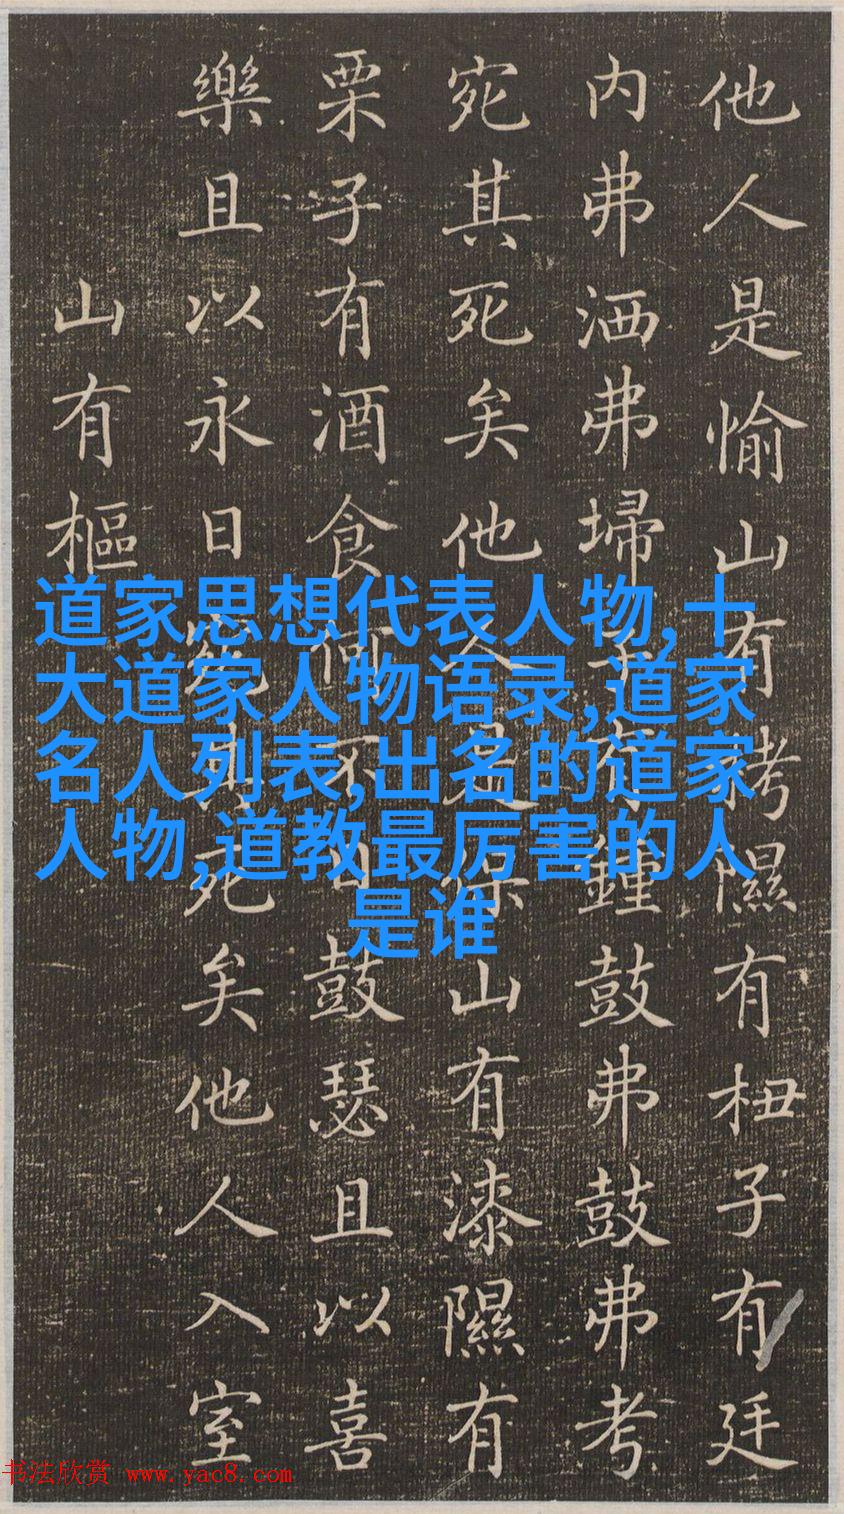 他人是愉山有栲隰有杻子有廷
内弗洒弗埽子有鍾鼓弗鼓弗考
宛其死矣他人是保山有漆隰有
栗子有酒食何不日鼓瑟且以喜
樂且以永日宛其死矣他人入室
山有樞
道家思想代表人物,十
大道家人物语录,道家
名人列表,出名的道家
人物,道教最厉害的人
是谁
书法欣赏 www.yac8.com